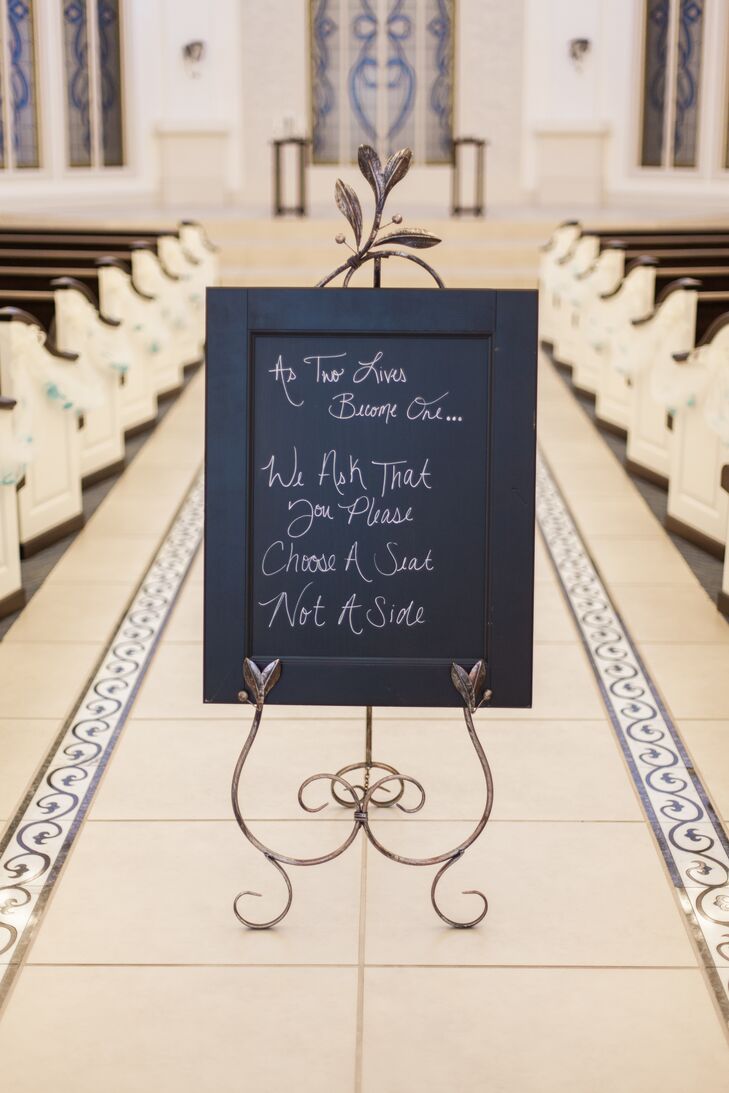 As Two Lives
Become One...
We Ask That
You Please
Choose A Seat
Not A Side